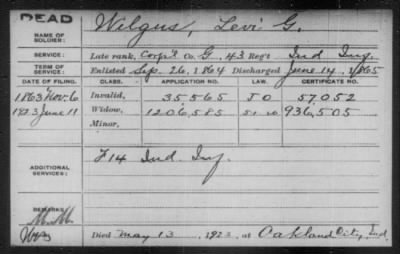 DEAD
NAME OF SOLDIER: Wilgus, Levi G.
SERVICE: Late rank, Corp'l Co. G, 43 Reg't Ind Inf.
TERM OF SERVICE: Enlisted Sep. 26, 1864 Discharged June 14, 1865
DATE OF FILING. CLASS. APPLICATION NO. CERTIFICATE NO.
1863 Nov. 6 Invalid, 35565 57.052
1923 June 11 Widow, 1206,585 936,505
Minor,
ADDITIONAL SERVICES: F 14 Ind. Inf.
REMARKS:
Died May 13, 1923, at Oakland City, Ind.